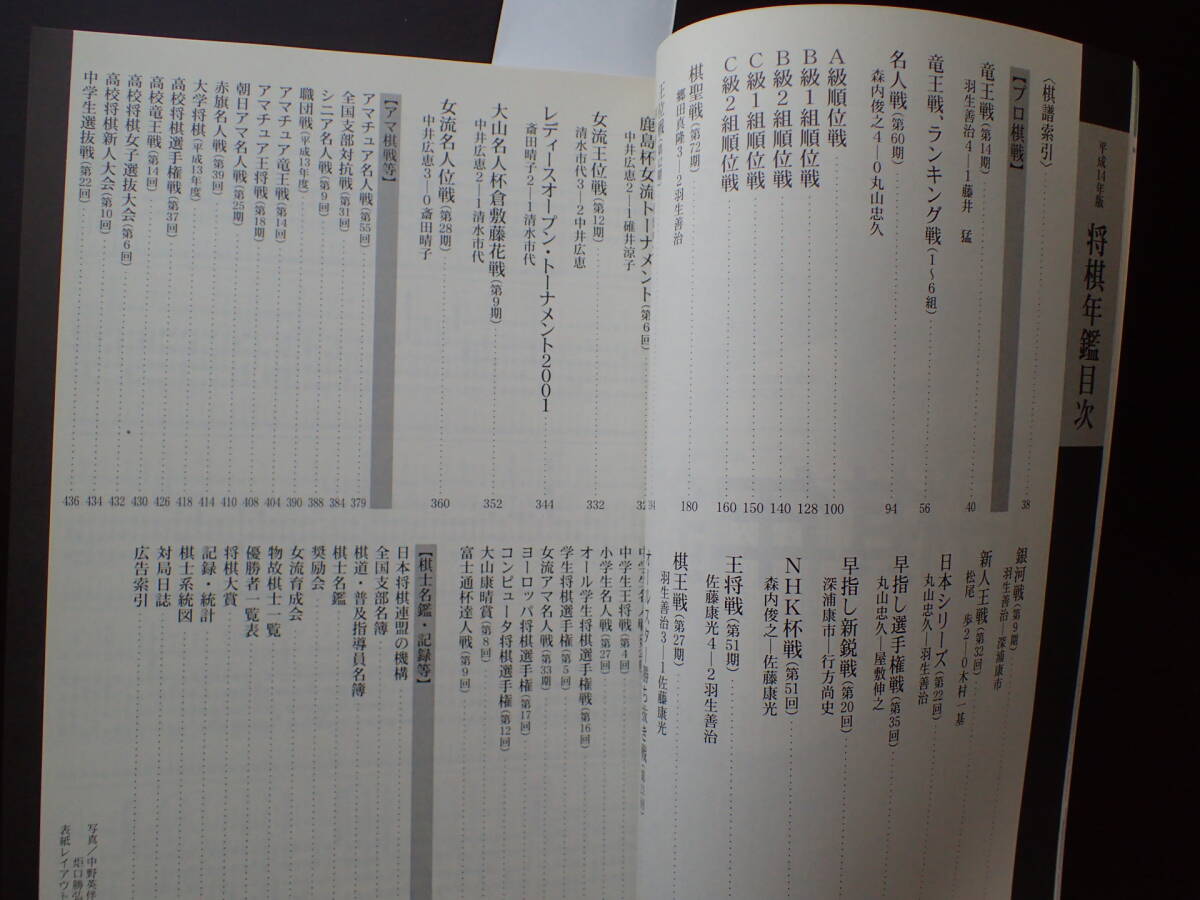 平成14年版 将棋年鑑目次
〈棋譜索引〉 38
【プロ棋戦】
竜王戦(第14期) 40
羽生善治4―1藤井 猛
竜王戦、ランキング戦(1~6組) 56
名人戦(第60期) 94
森内俊之4―0丸山忠久
A級順位戦 100
B級1組順位戦 128
B級2組順位戦 140
C級1組順位戦 150
C級2組順位戦 160
棋聖戦(第72期) 180
郷田真隆3―2羽生善治
銀河戦(第9期)
羽生善治―深浦康市
新人王戦(第32回)
松尾 歩2―0木村一基
日本シリーズ(第22回)
丸山忠久―羽生善治
早指し選手権戦(第35回)
丸山忠久―屋敷伸之
早指し新鋭戦(第20回)
深浦康市―行方尚史
NHK杯戦(第51回)
森内俊之―佐藤康光
王将戦(第51期)
佐藤康光4―2羽生善治
棋王戦(第27期)
羽生善治3―1佐藤康光
鹿島杯女流トーナメント(第6回)
中井広恵2―1碓井涼子
女流王位戦(第12期) 332
清水市代3―2中井広恵
レディースオープン・トーナメント2001 344
斎田晴子2―1清水市代
大山名人杯倉敷藤花戦(第9期) 352
中井広恵2―1清水市代
女流名人位戦(第28期) 360
中井広恵3―0斎田晴子
【アマ棋戦等】
アマチュア名人戦(第55回) 379
全国支部対抗戦(第31回) 384
シニア名人戦(第9回) 388
職団戦(平成13年度) 390
アマチュア竜王戦(第14回) 404
アマチュア王将戦(第18期) 408
朝日アマ名人戦(第25期) 410
赤旗名人戦(第39回) 414
大学将棋(平成13年度) 418
高校将棋選手権戦(第37回) 426
高校竜王戦(第14回) 430
高校将棋女子選抜大会(第6回) 432
高校将棋新人大会(第10回) 434
中学生選抜戦(第22回) 436
中学生王将戦(第4回)
小学生名人戦(第27回)
オール学生将棋選手権戦(第16回)
学生将棋選手権(第5回)
女流アマ名人戦(第33期)
ヨーロッパ将棋選手権(第17回)
コンピュータ将棋選手権(第12回)
大山康晴賞(第8回)
富士通杯達人戦(第9回)
【棋士名鑑・記録等】
日本将棋連盟の機構
全国支部名簿
棋道・普及指導員名簿
棋士名鑑
奨励会
女流育成会
物故棋士一覧
優勝者一覧表
将棋大賞
記録・統計
棋士系統図
対局日誌
広告索引
写真/中野英伴
炬口勝弘
表紙レイアウト